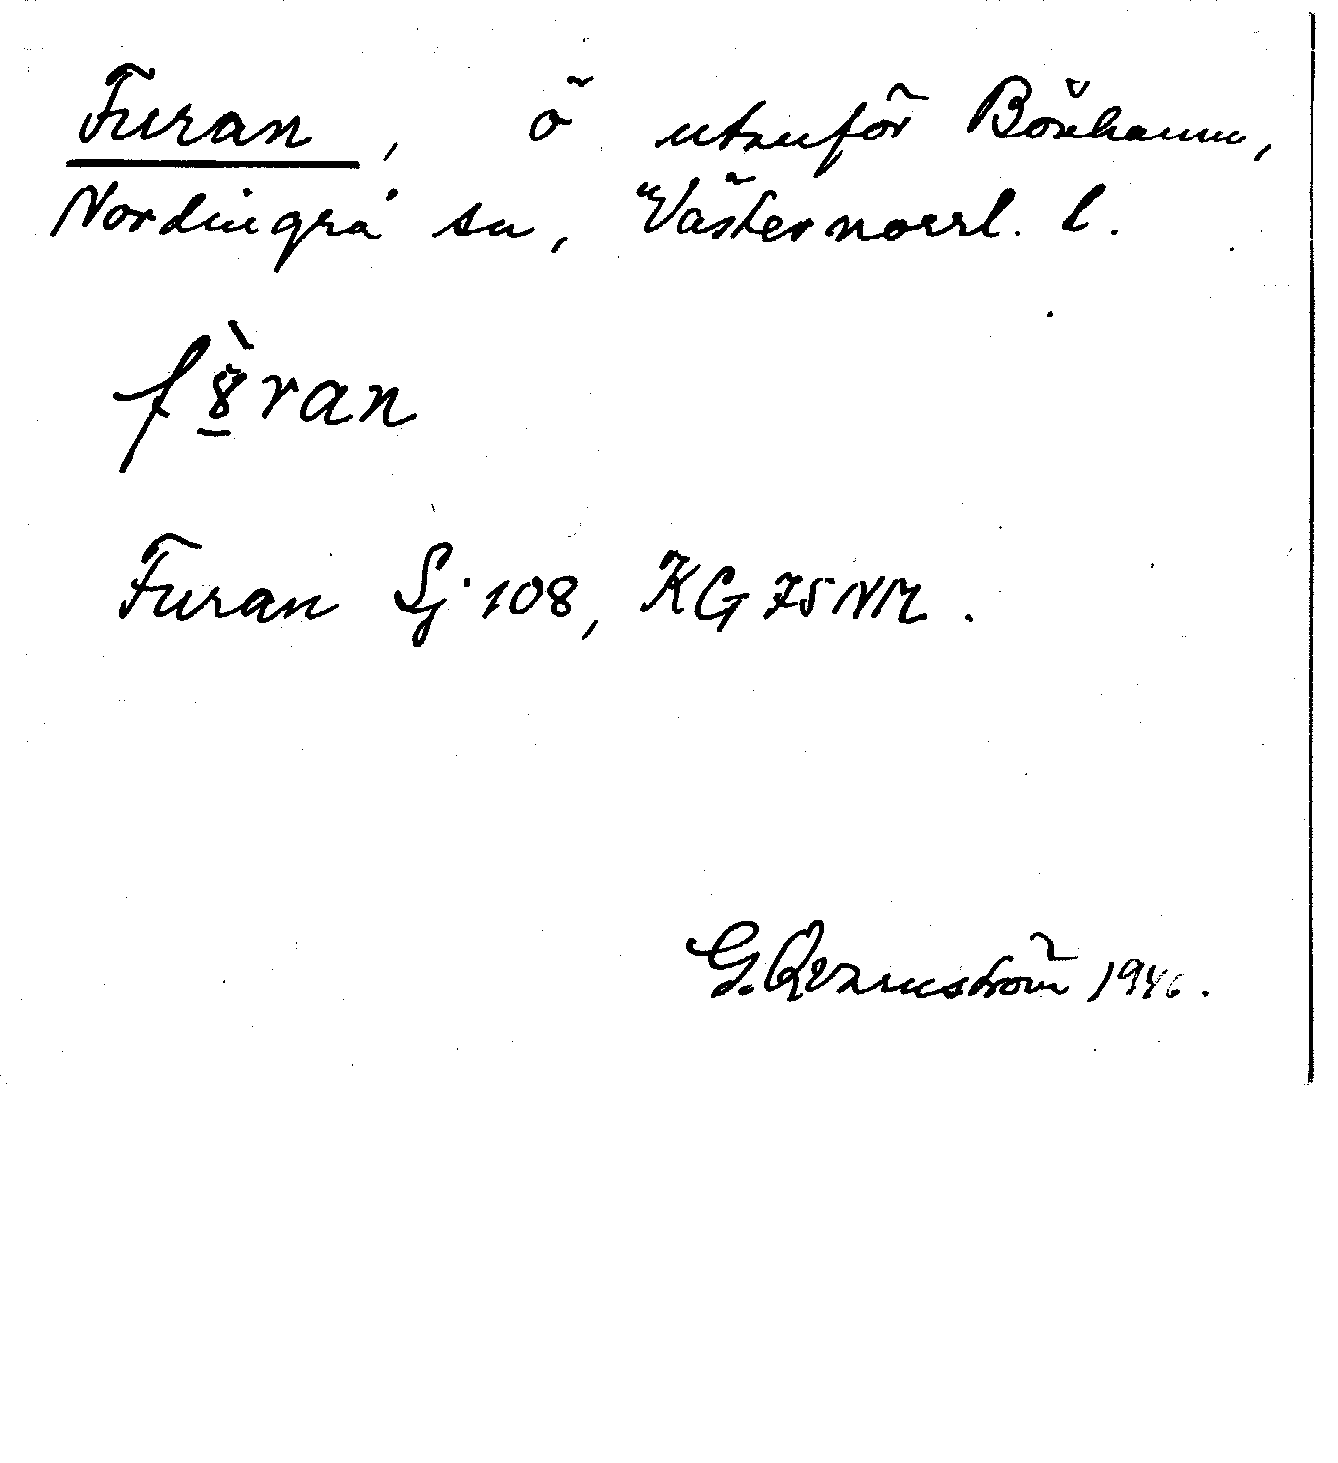 Furan, ö utanför Bönhamn,
Nordingrå sn, Västernorrl. l.
fö̀ran
Furan Sj 108, KG 75 NM.
G. Qvarnström 1946.